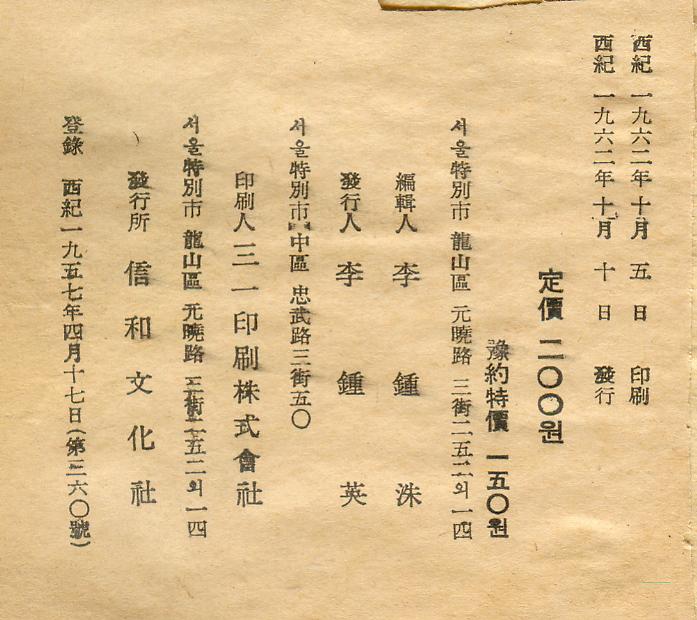 西紀 一九六二年十月 五 日 印刷
西紀 一九六二年十月 十 日 發行
定價 二〇〇원
豫約特價 一五〇원
서울特別市 龍山區 元曉路 三街二五二의 一四
編輯人 李 鍾 洙
發行人 李 鍾 英
서울特別市 中區 忠武路三街五〇
印刷人 三一印刷株式會社
서울特別市 龍山區 元曉路 三街二五二의 一四
發行所 信和文化社
登錄 西紀一九五七年四月十七日(第三六〇號)